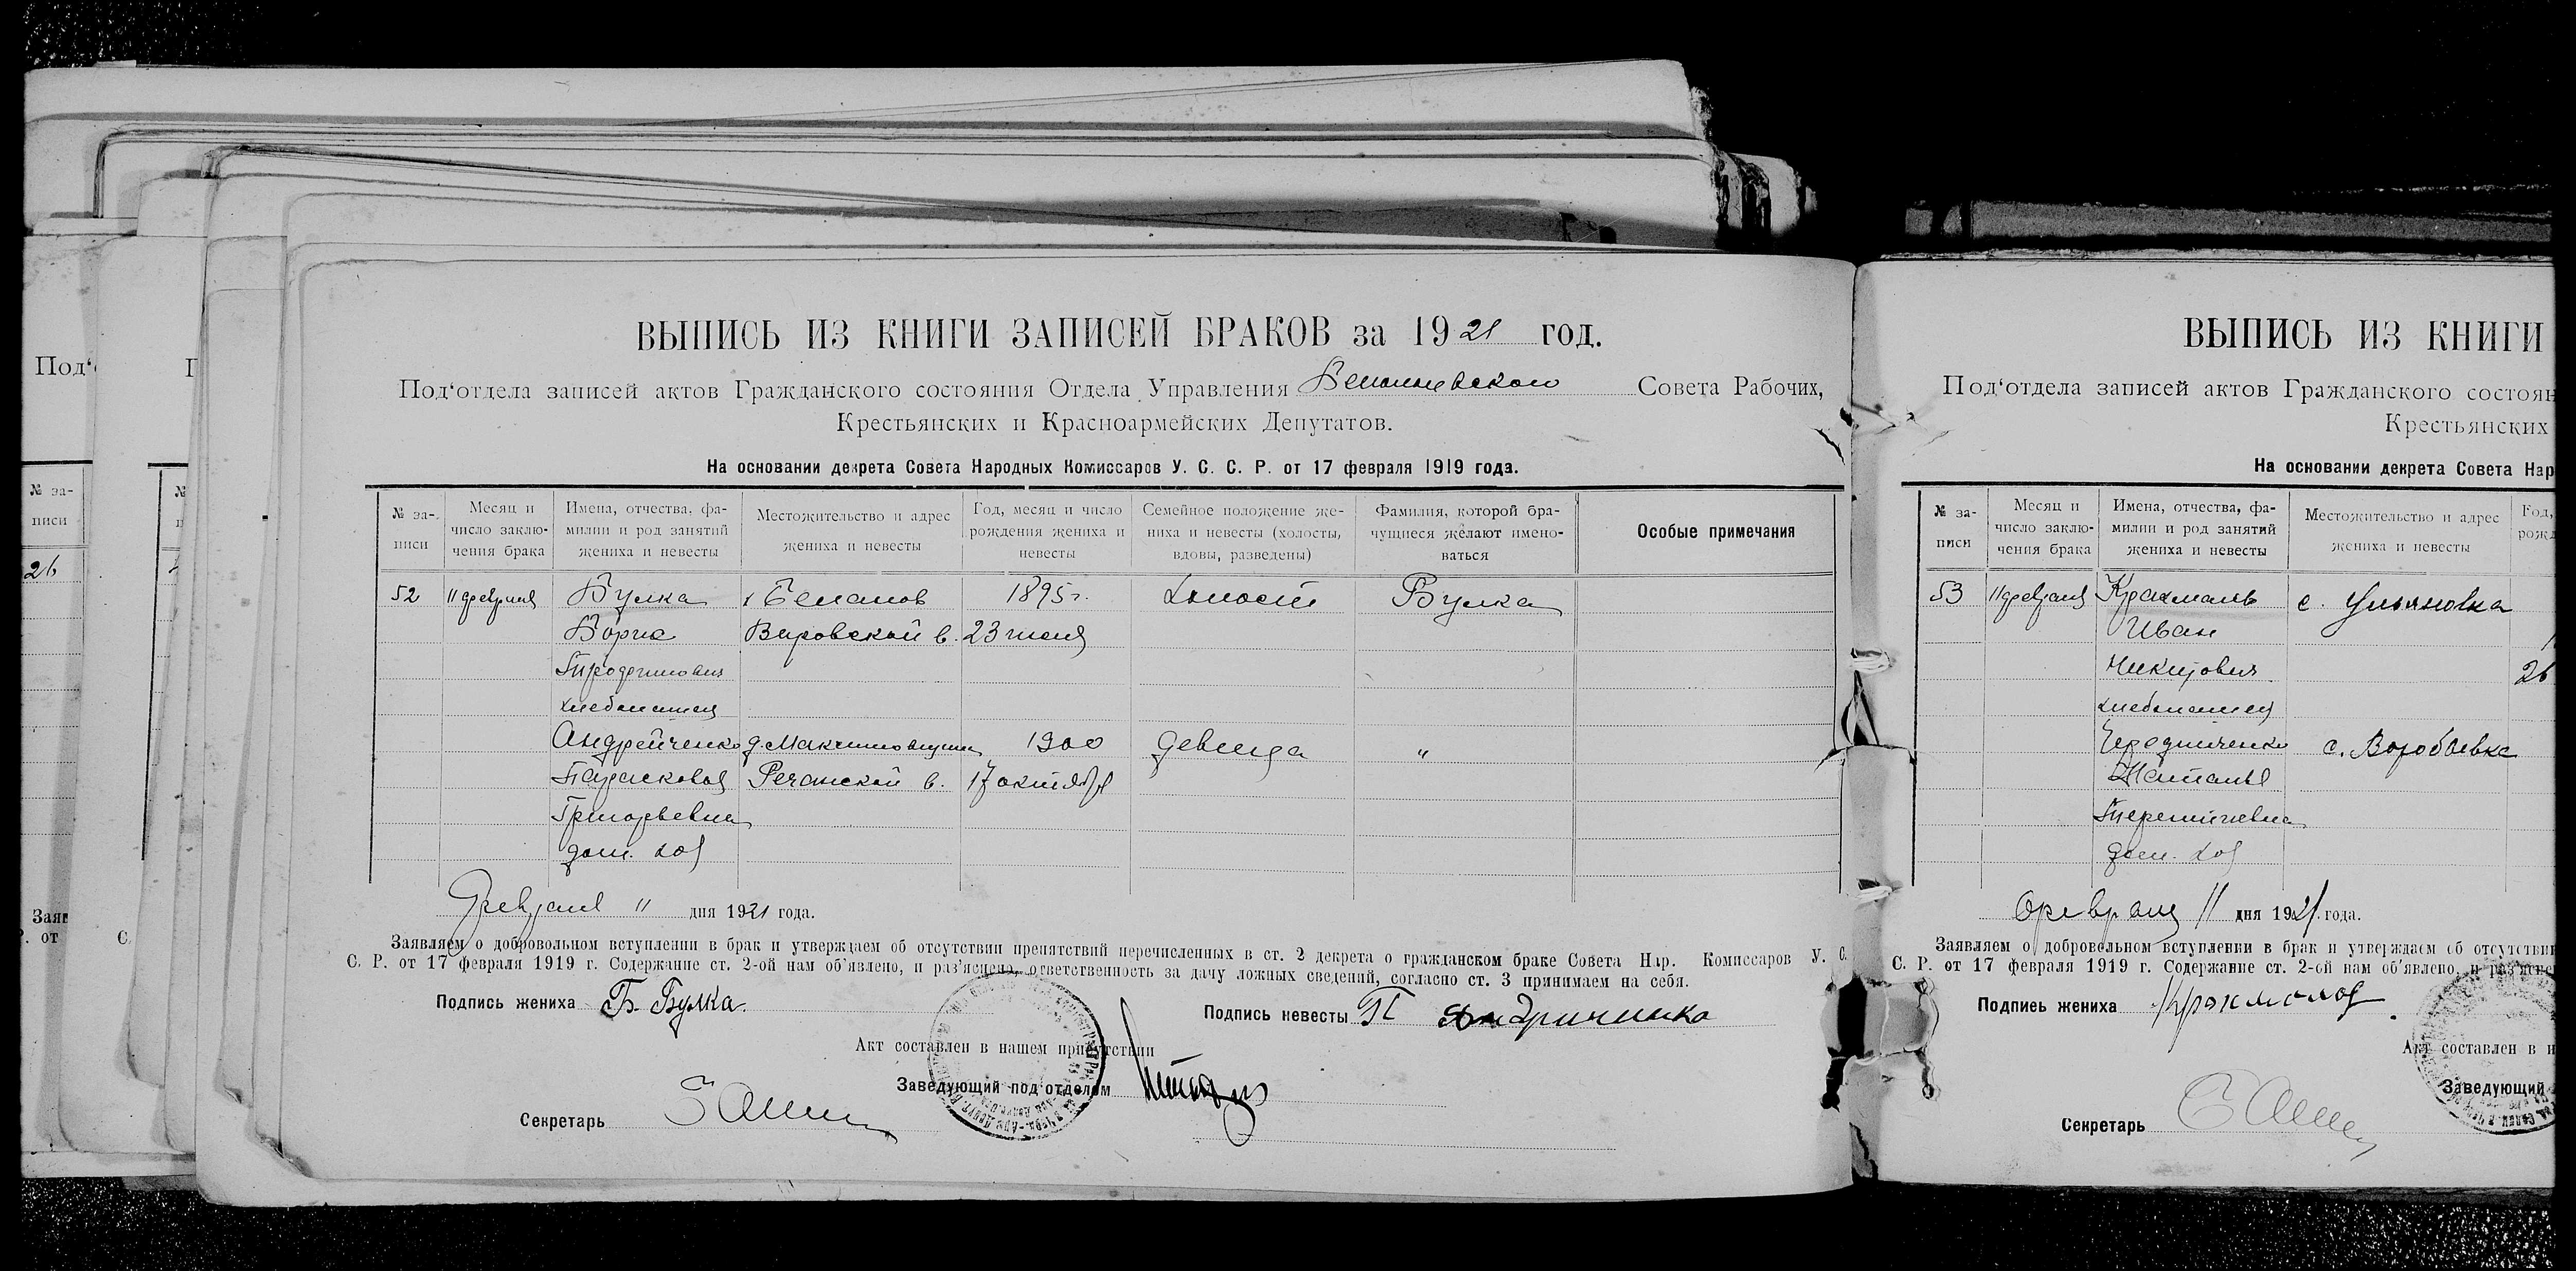 ВЫПИСЬ ИЗ КНИГИ ЗАПИСЕЙ БРАКОВ за 1921 год.
Под‘отдела записей актов Гражданского состояния Отдела Управления Совета Рабочих,
Крестьянских и Красноармейских Депутатов.
На основании декрета Совета Народных Комиссаров У. С. С. Р. от 17 февраля 1919 года.
№ за-писи
Месяц и число заклю-чения брака
Имена, отчества, фа-милии и род занятий жениха и невесты
Местожительство и адрес жениха и невесты
Год, месяц и число рождения жениха и невесты
Семейное положение же-ниха и невесты (холосты, вдовы, разведены)
Фамилия, которой бра-чущиеся желают имено-ваться
Особые примечания
52 11 февраля Булка 1895 г. холост Булка
Борис Веровской в. 23
Трофимович
хлебопашец
Андрейченко 1900 девица "
Парасковья Речанской в. 17 октября
Григорьевна
дом. хоз
Февраля 11 дня 1921 года.
Заявляем о добровольном вступлении в брак и утверждаем об отсутствии препятствий перечисленных в ст. 2 декрета о гражданском браке Совета Нар. Комиссаров У. С.
С. Р. от 17 февраля 1919 г. Содержание ст. 2-ой нам об‘явлено, и раз‘яснено, ответственность за дачу ложных сведений, согласно ст. 3 принимаем на себя.
Подпись жениха Б. Булка.
Подпись невесты П Андричинко
Акт составлен в нашем присутствии
Заведующий под‘отделом
Секретарь
ВЫПИСЬ ИЗ КНИГИ
Под‘отдела записей актов Гражданского состоян
Крестьянских
На основании декрета Совета Нар
№ за-писи
Месяц и число заклю-чения брака
Имена, отчества, фа-милии и род занятий жениха и невесты
Местожительство и адрес жениха и невесты
Год,
рожд
53 11 февраля Крахмаль с. Ульяновка
Иван
Никитович 26
хлебопашец
Чередниченко с. Воробьевка
Наталья
Терентиевна
дом. хоз
Февраля 11 дня 1921 года.
Заявляем о добровольном вступлении в брак и утверждаем об отсутствии
С. Р. от 17 февраля 1919 г. Содержание ст. 2-ой нам об‘явлено, и раз‘яснен
Подпись жениха
Акт составлен в н
Заведующий
Секретарь
Под‘
№ за-писи
26
Заяв